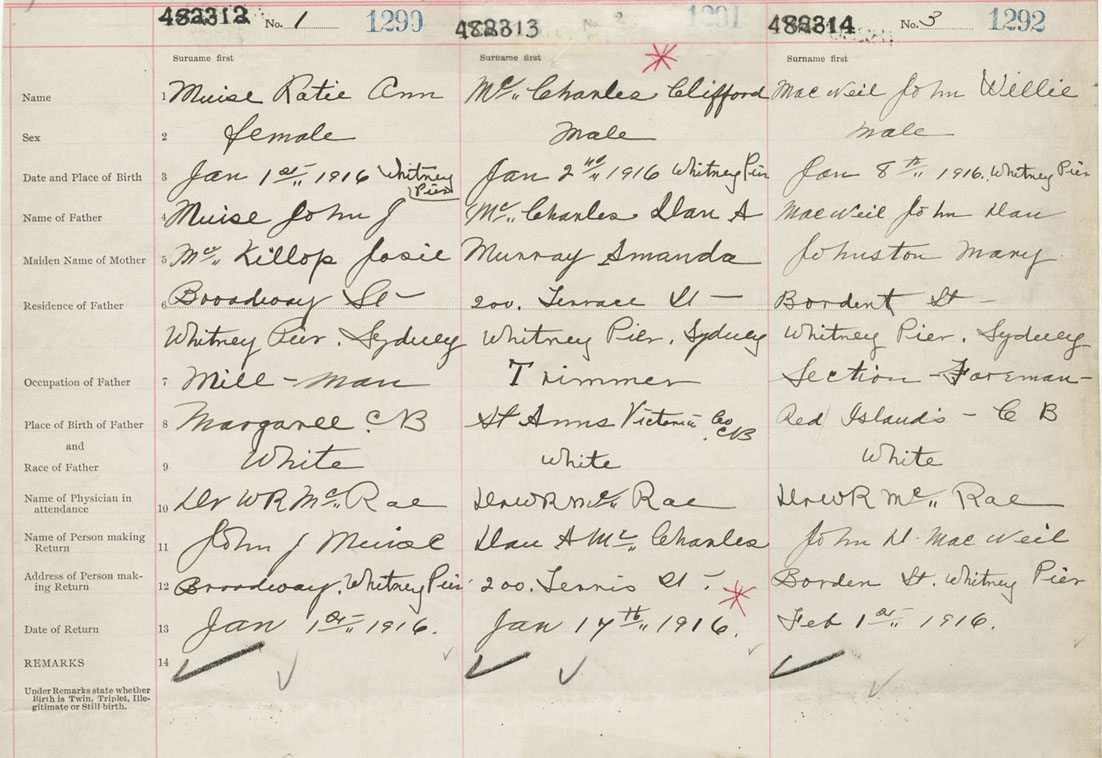 482312 No. 1 1290 482313 No. 2 1291 482314 No. 3 1292
Surname first Surname first Surname first
Name 1 Muise Katie Ann Mc„ Charles Clifford MacNeil John Willie
Sex 2 female Male male
Date and Place of Birth 3 Jan 1st„ 1916 Whitney Pier Jan 2nd„ 1916 Whitney Pier Jan 8th„ 1916. Whitney Pier
Name of Father 4 Muise John J Mc„ Charles Dan A MacNeil John Dan
Maiden Name of Mother 5 Mc„ Killop Josie Murray Amanda Johnston Mary
Residence of Father 6 Broadway St – 200. Terrace St – Borden St –
Whitney Pier. Sydney Whitney Pier. Sydney Whitney Pier. Sydney
Occupation of Father 7 Mill – man Trimmer Section – Foreman –
Place of Birth of Father 8 Margaree CB St Anns Victoria Co CB Red Islands – C B
and
Race of Father 9 White White White
Name of Physician in attendance 10 Dr WR Mc„ Rae Dr WR Mc„ Rae Dr WR Mc„ Rae
Name of Person making Return 11 John J Muise Dan A Mc„ Charles John D. MacNeil
Address of Person making Return 12 Broadway. Whitney Pier 200. Tennis St – Borden St. Whitney Pier
Date of Return 13 Jan 1st„ 1916. Jan 17th„ 1916. Feb 1st„ 1916.
REMARKS 14
Under Remarks state whether
Birth is Twin, Triplet, Ille-
gitimate or Still-birth.